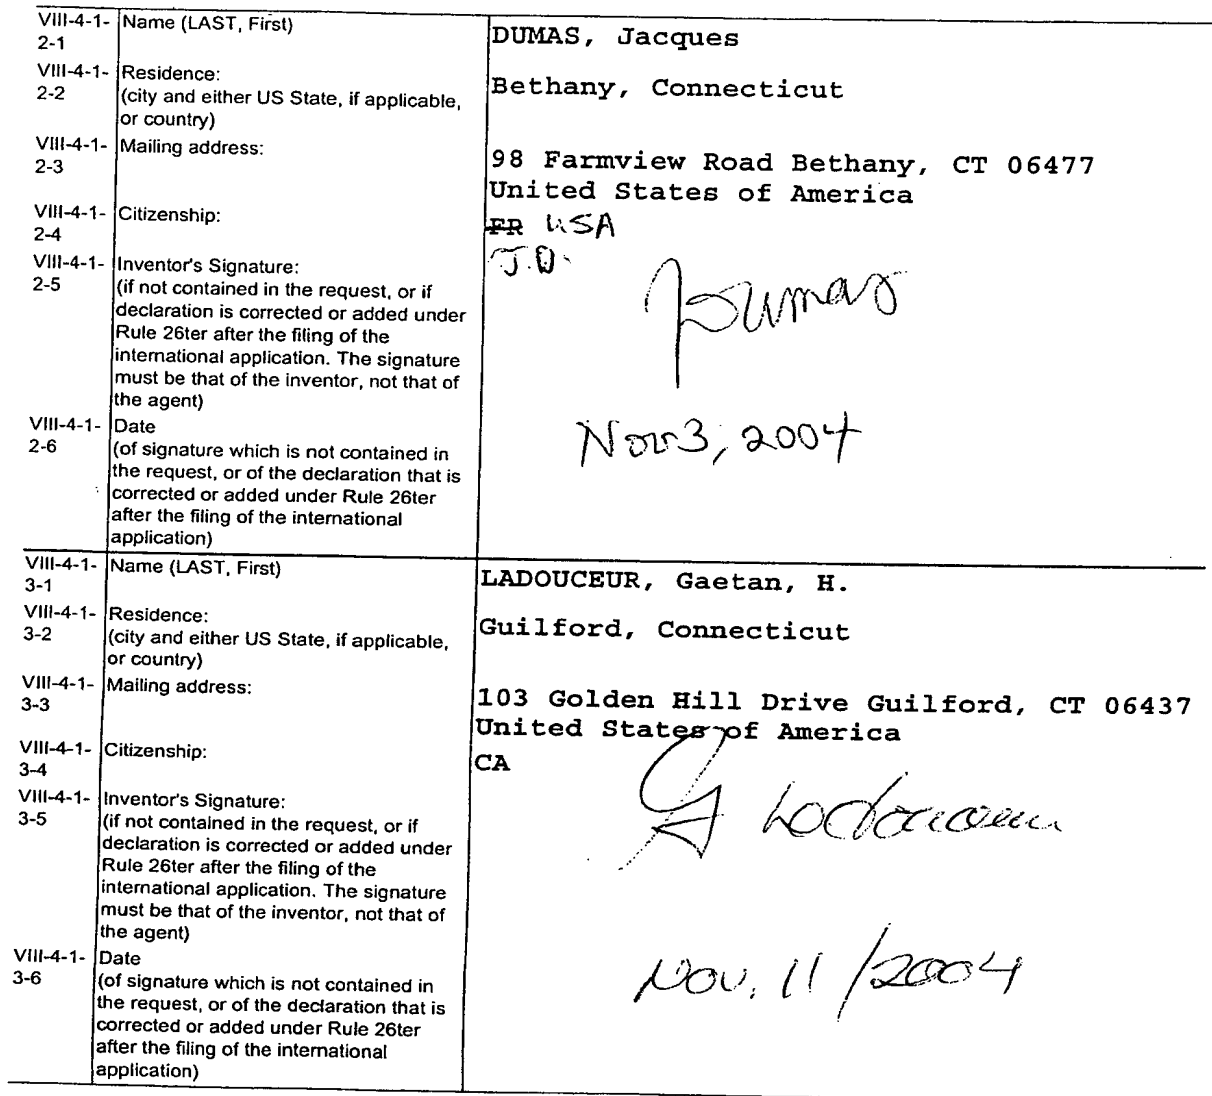 VIII-4-1-2-1 Name (LAST, First) DUMAS, Jacques
VIII-4-1-2-2 Residence: Bethany, Connecticut
(city and either US State, if applicable,
or country)
VIII-4-1-2-3 Mailing address: 98 Farmview Road Bethany, CT 06477
United States of America
VIII-4-1-2-4 Citizenship: FR USA
J.D.
VIII-4-1-2-5 Inventor's Signature: JDumas
(if not contained in the request, or if
declaration is corrected or added under
Rule 26ter after the filing of the
international application. The signature
must be that of the inventor, not that of
the agent)
VIII-4-1-2-6 Date Nov 3, 2004
(of signature which is not contained in
the request, or of the declaration that is
corrected or added under Rule 26ter
after the filing of the international
application)
VIII-4-1-3-1 Name (LAST, First) LADOUCEUR, Gaetan, H.
VIII-4-1-3-2 Residence: Guilford, Connecticut
(city and either US State, if applicable,
or country)
VIII-4-1-3-3 Mailing address: 103 Golden Hill Drive Guilford, CT 06437
United States of America
VIII-4-1-3-4 Citizenship: CA
VIII-4-1-3-5 Inventor's Signature: G Ladouceur
(if not contained in the request, or if
declaration is corrected or added under
Rule 26ter after the filing of the
international application. The signature
must be that of the inventor, not that of
the agent)
VIII-4-1-3-6 Date Nov. 11/2004
(of signature which is not contained in
the request, or of the declaration that is
corrected or added under Rule 26ter
after the filing of the international
application)